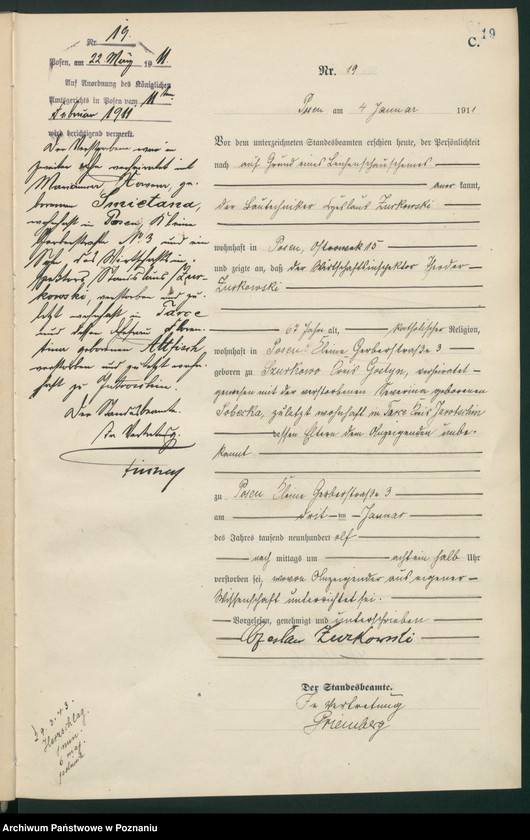 C. 19
Nr. 19
Posen, am 22 März 1911
Auf Anordnung des Königlichen
Amtsgerichts in Posen vom 11ten
Februar 1911
wird berichtigend vermerkt.
Der Verstorbene war in
zweiter Ehe verheiratet mit
Marianna, geborenen Smielana,
wohnhaft in Posen, Kleine
Gerberstraße N° 3 und ein
Sohn des Wirtschaftsinspektors
Stanislaus Zurkowski,
verstorben und zuletzt
wohnhaft in Tarce
und dessen Ehefrau
geborenen
verstorben und zuletzt wohnhaft
zu
Der Standesbeamte.
In Vertretung.
Nr. 19
Posen am 4 Januar 1911
Vor dem unterzeichneten Standesbeamten erschien heute, der Persönlichkeit
nach auf Grund eines Leichenschauscheines
anerkannt,
der Bautechniker Czeslaus Zurkowski
wohnhaft in Posen, Ostrowek 15
und zeigte an, daß der Wirtschaftsinspektor Theodor
Zurkowski
Jahre alt, katholischer Religion,
wohnhaft in Posen Kleine Gerberstraße 3
geboren zu Szurkowo Kreis Gostyn, verheiratet
gewesen mit der verstorbenen Severina geborenen
Sobecka, zuletzt wohnhaft in Tarce Kreis Jarotschin
dessen Eltern dem Anzeigenden unbekannt
zu Posen Kleine Gerberstraße 3
am dritten Januar
des Jahres tausend neunhundert elf
nach mittags um acht ein halb Uhr
verstorben sei, wovon Anzeigender aus eigener
Wissenschaft unterrichtet sei.
Vorgelesen, genehmigt und unterschrieben
Czeslaw Zurkowski
Der Standesbeamte.
In Vertretung
Griemberg
Herzschlag
Archiwum Państwowe w Poznaniu